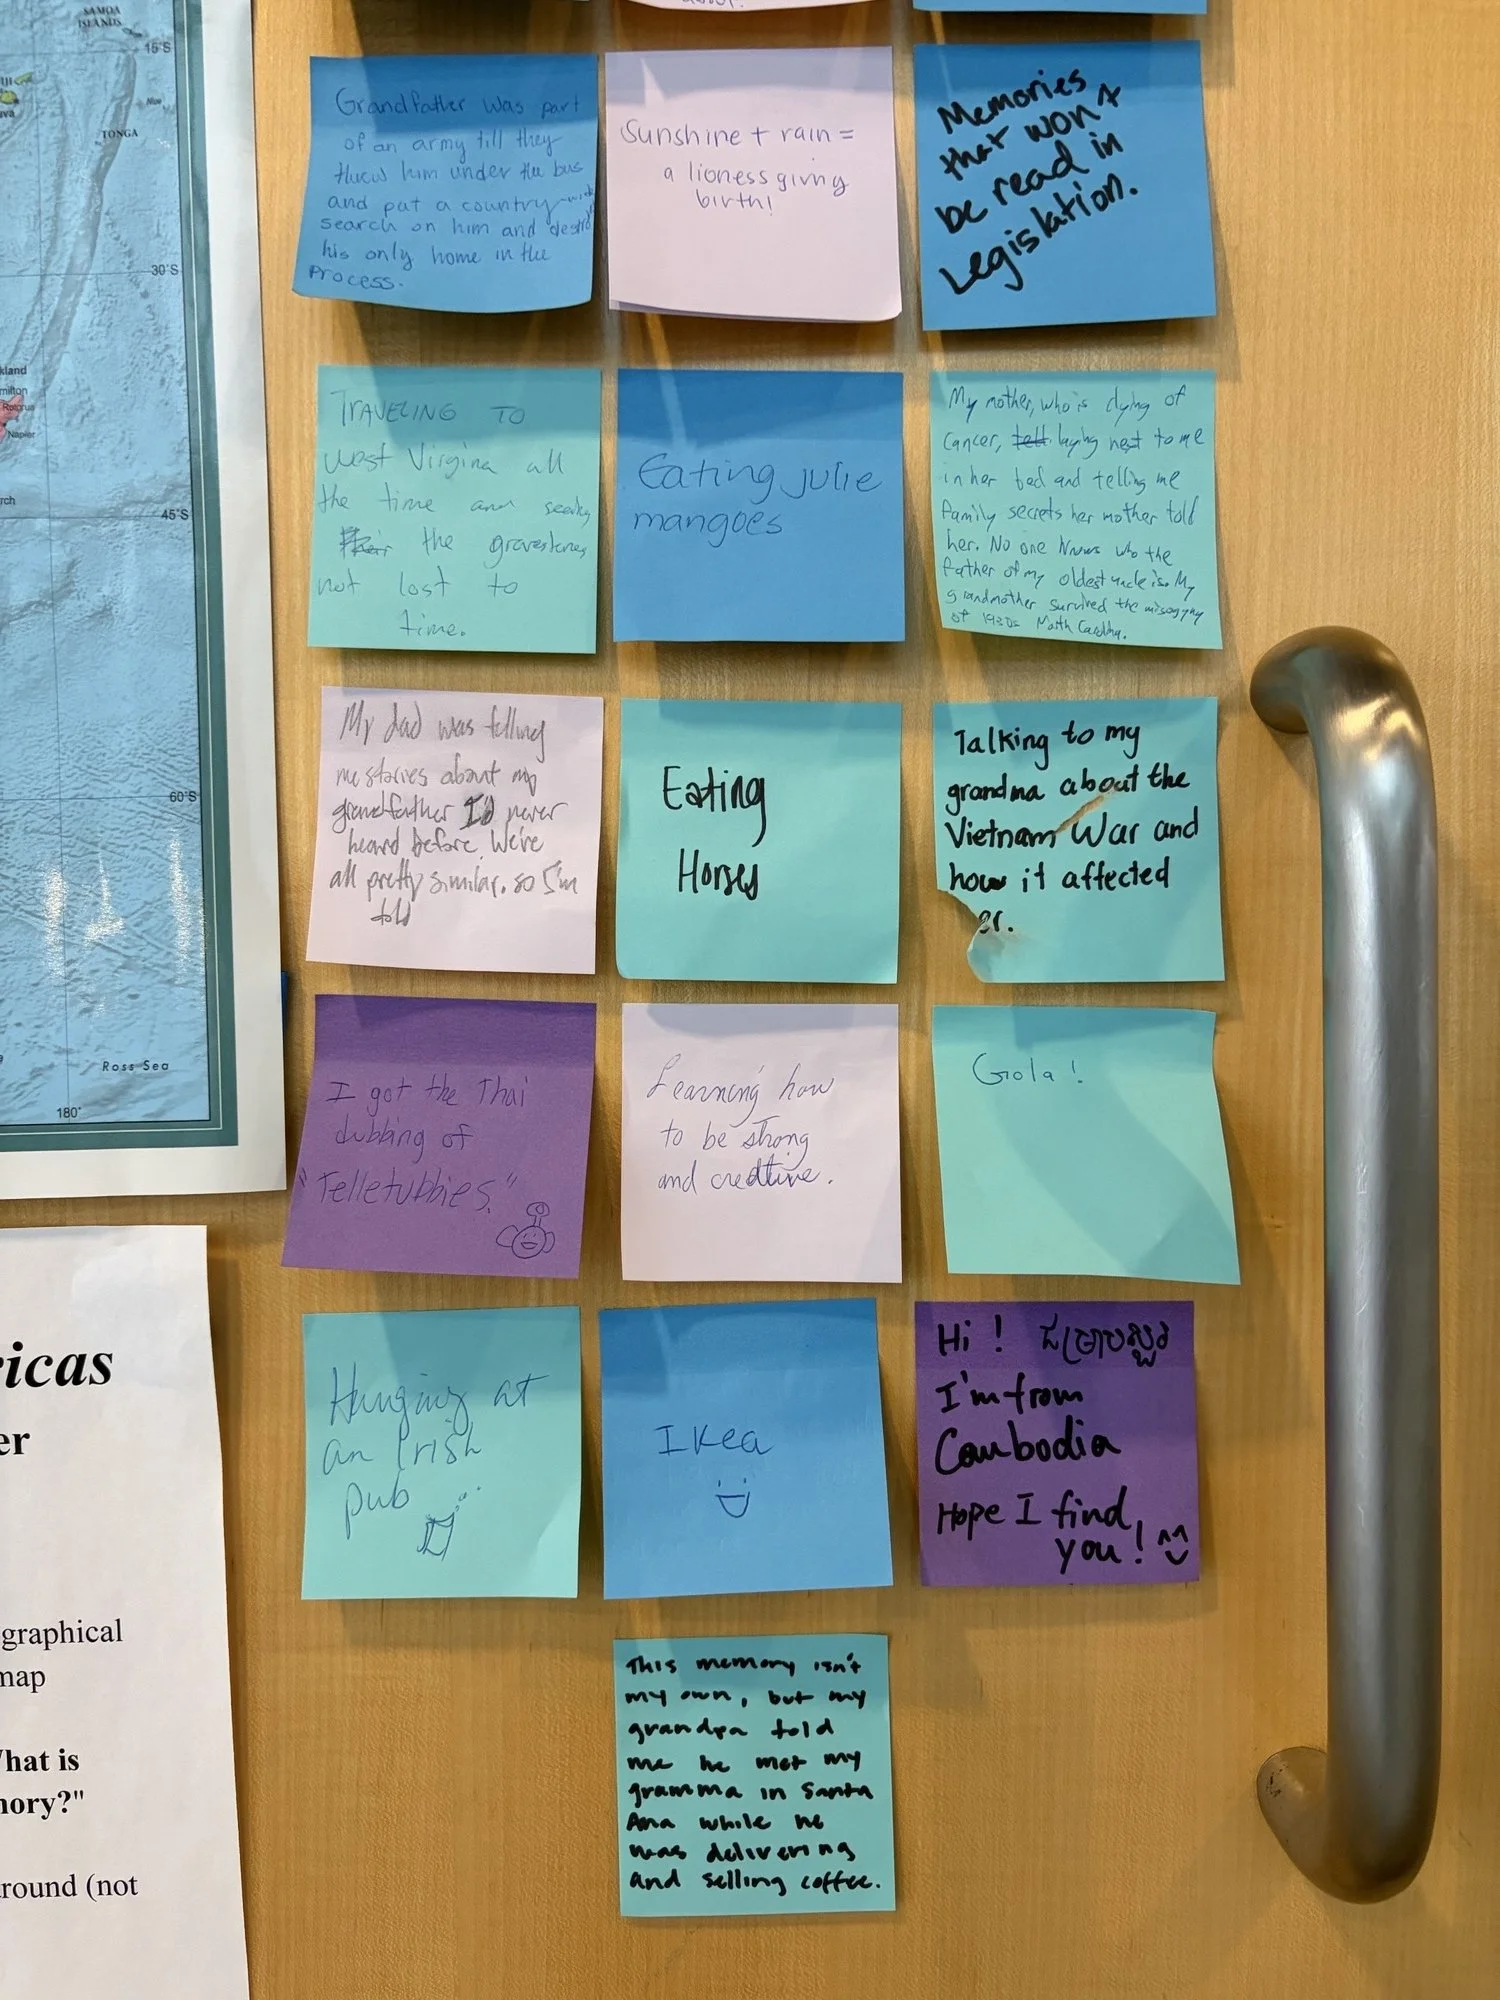 SAMOA
ISLANDS
15°S
Niue
TONGA
30°S
Napier
45°S
60°S
Ross Sea
180°
icas
er
graphical
map
hat is
ory?"
round (not
about!
Grandfather was part
of an army till they
threw him under the bus
and put a country-wide
search on him and destroy
his only home in the
process.
Sunshine + rain =
a lioness giving
birth!
Memories
that won't
be read in
Legislation.
TRAVELING TO
West Virgina all
the time and seeing
the gravestones
not lost to
time.
Eating julie
mangoes
My mother, who is dying of
cancer, tell laying next to me
in her bed and telling me
family secrets her mother told
her. No one knows who the
father of my oldest uncle is. My
grandmother survived the misogyny
of 1930s North Carolina.
My dad was telling
me stories about my
grandfather I'd never
heard before. We're
all pretty similar. so I'm
told
Eating
Horses
Talking to my
grandma about the
Vietnam War and
how it affected
er.
I got the Thai
dubbing of
"Telletubbies."
Learning how
to be strong
and creative.
Gola!
Hanging at
an Irish
pub
IKea
Hi! ជម្រាបសួរ
I'm from
Cambodia
Hope I find
you!
This memory isn't
my own, but my
grandpa told
me he met my
gramma in Santa
Ana while he
was delivering
and selling coffee.